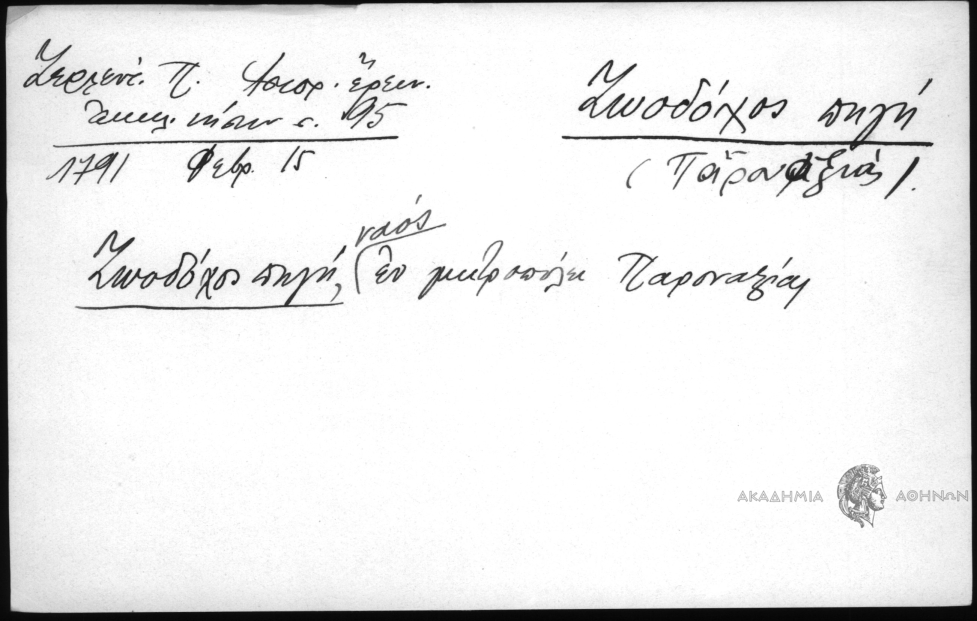 Ζερλεντ. Π. Ἱστορ. ἔρευν.
ἐκκλ. νήσων σ. 195
1791 Φεβρ. 15
Ζωοδόχος πηγή
(Παροναξίας).
ναός
Ζωοδόχος πηγή, ἐν μητροπόλει Παροναξίας
ΑΚΑΔΗΜΙΑ ΑΘΗΝΩΝ